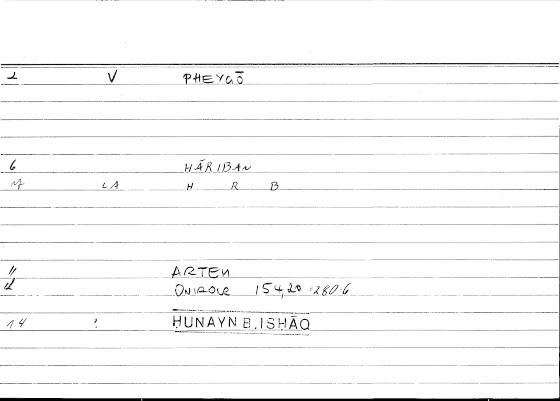 1 V PHEYGŌ
6 HĀRIBAN
LA H R B
11 ARTEM
12 ONIROCR 154,20 = 280.6
14 ? HUNAYN B. ISHĀQ